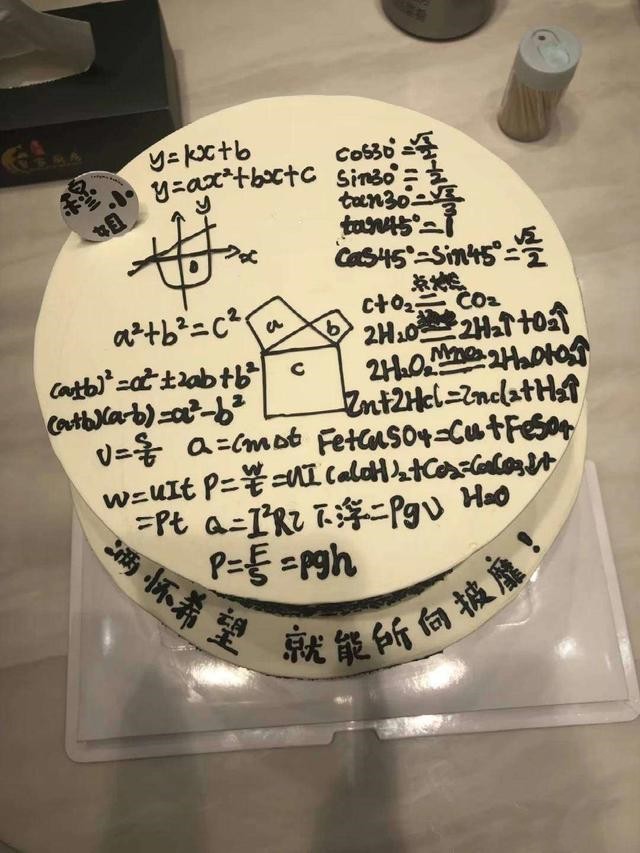 y=kx+b
y=ax²+bx+c
y
x
0
cos30°=√3/2
sin30°=1/2
tan30°=√3/3
tan45°=1
cas45°=sin45°=√2/2
点燃
c+O₂=CO₂
2H₂O 通电 2H₂↑+O₂↑
2H₂O₂ Mno₂ 2H₂O+O₂↑
Zn+2Hcl=Zncl₂+H₂↑
a²+b²=C²
a
b
c
(a+b)²=a²±2ab+b²
(a+b)(a-b)=a²-b²
υ=s/t
Q=cmΔt
Fe+CuSO₄=Cu+FeSO₄
w=uIt
P=w/t=uI
Ca(OH)₂+Co₂=CaCo₃↓+
H₂O
=Pt
Q=I²Rt
F浮=ρgV
P=F/S=ρgh
小
姐
满怀希望 就能所向披靡!